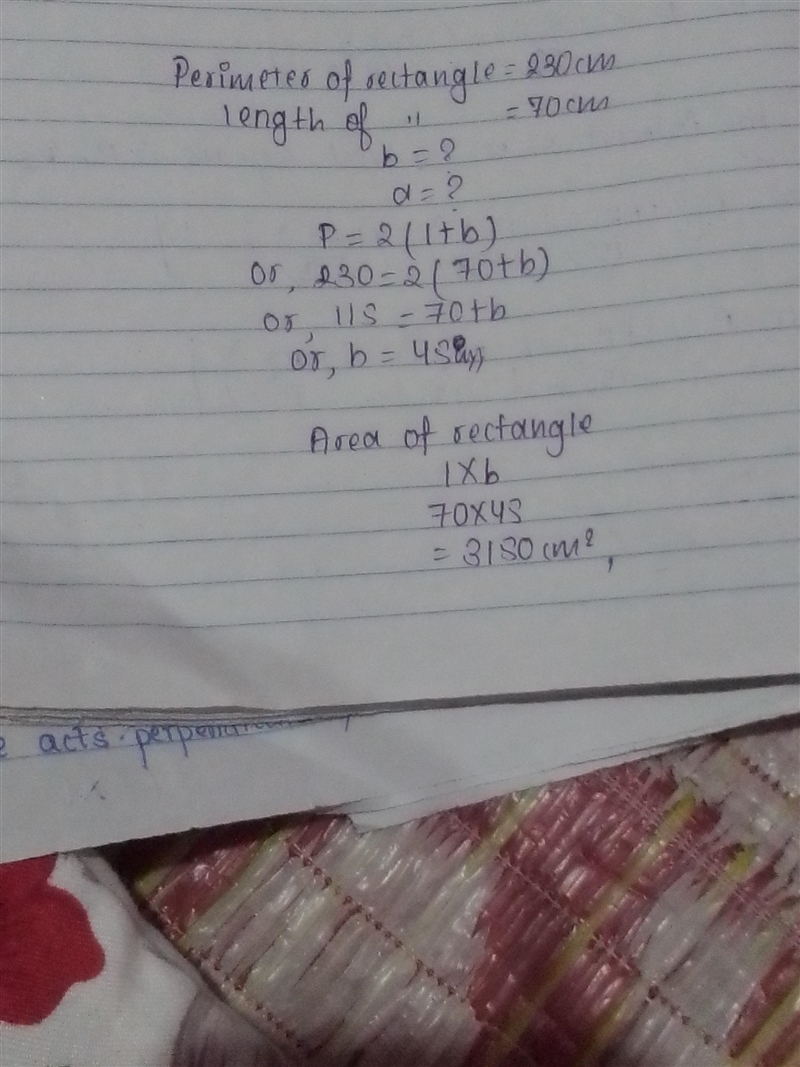 Perimeter of rectangle = 230cm
length of " = 70cm
b = ?
a = ?
P = 2(l+b)
or, 230=2(70+b)
or, 115 = 70+b
or, b = 45
Area of rectangle
l×b
70×45
= 3150 cm²,
acts perpen